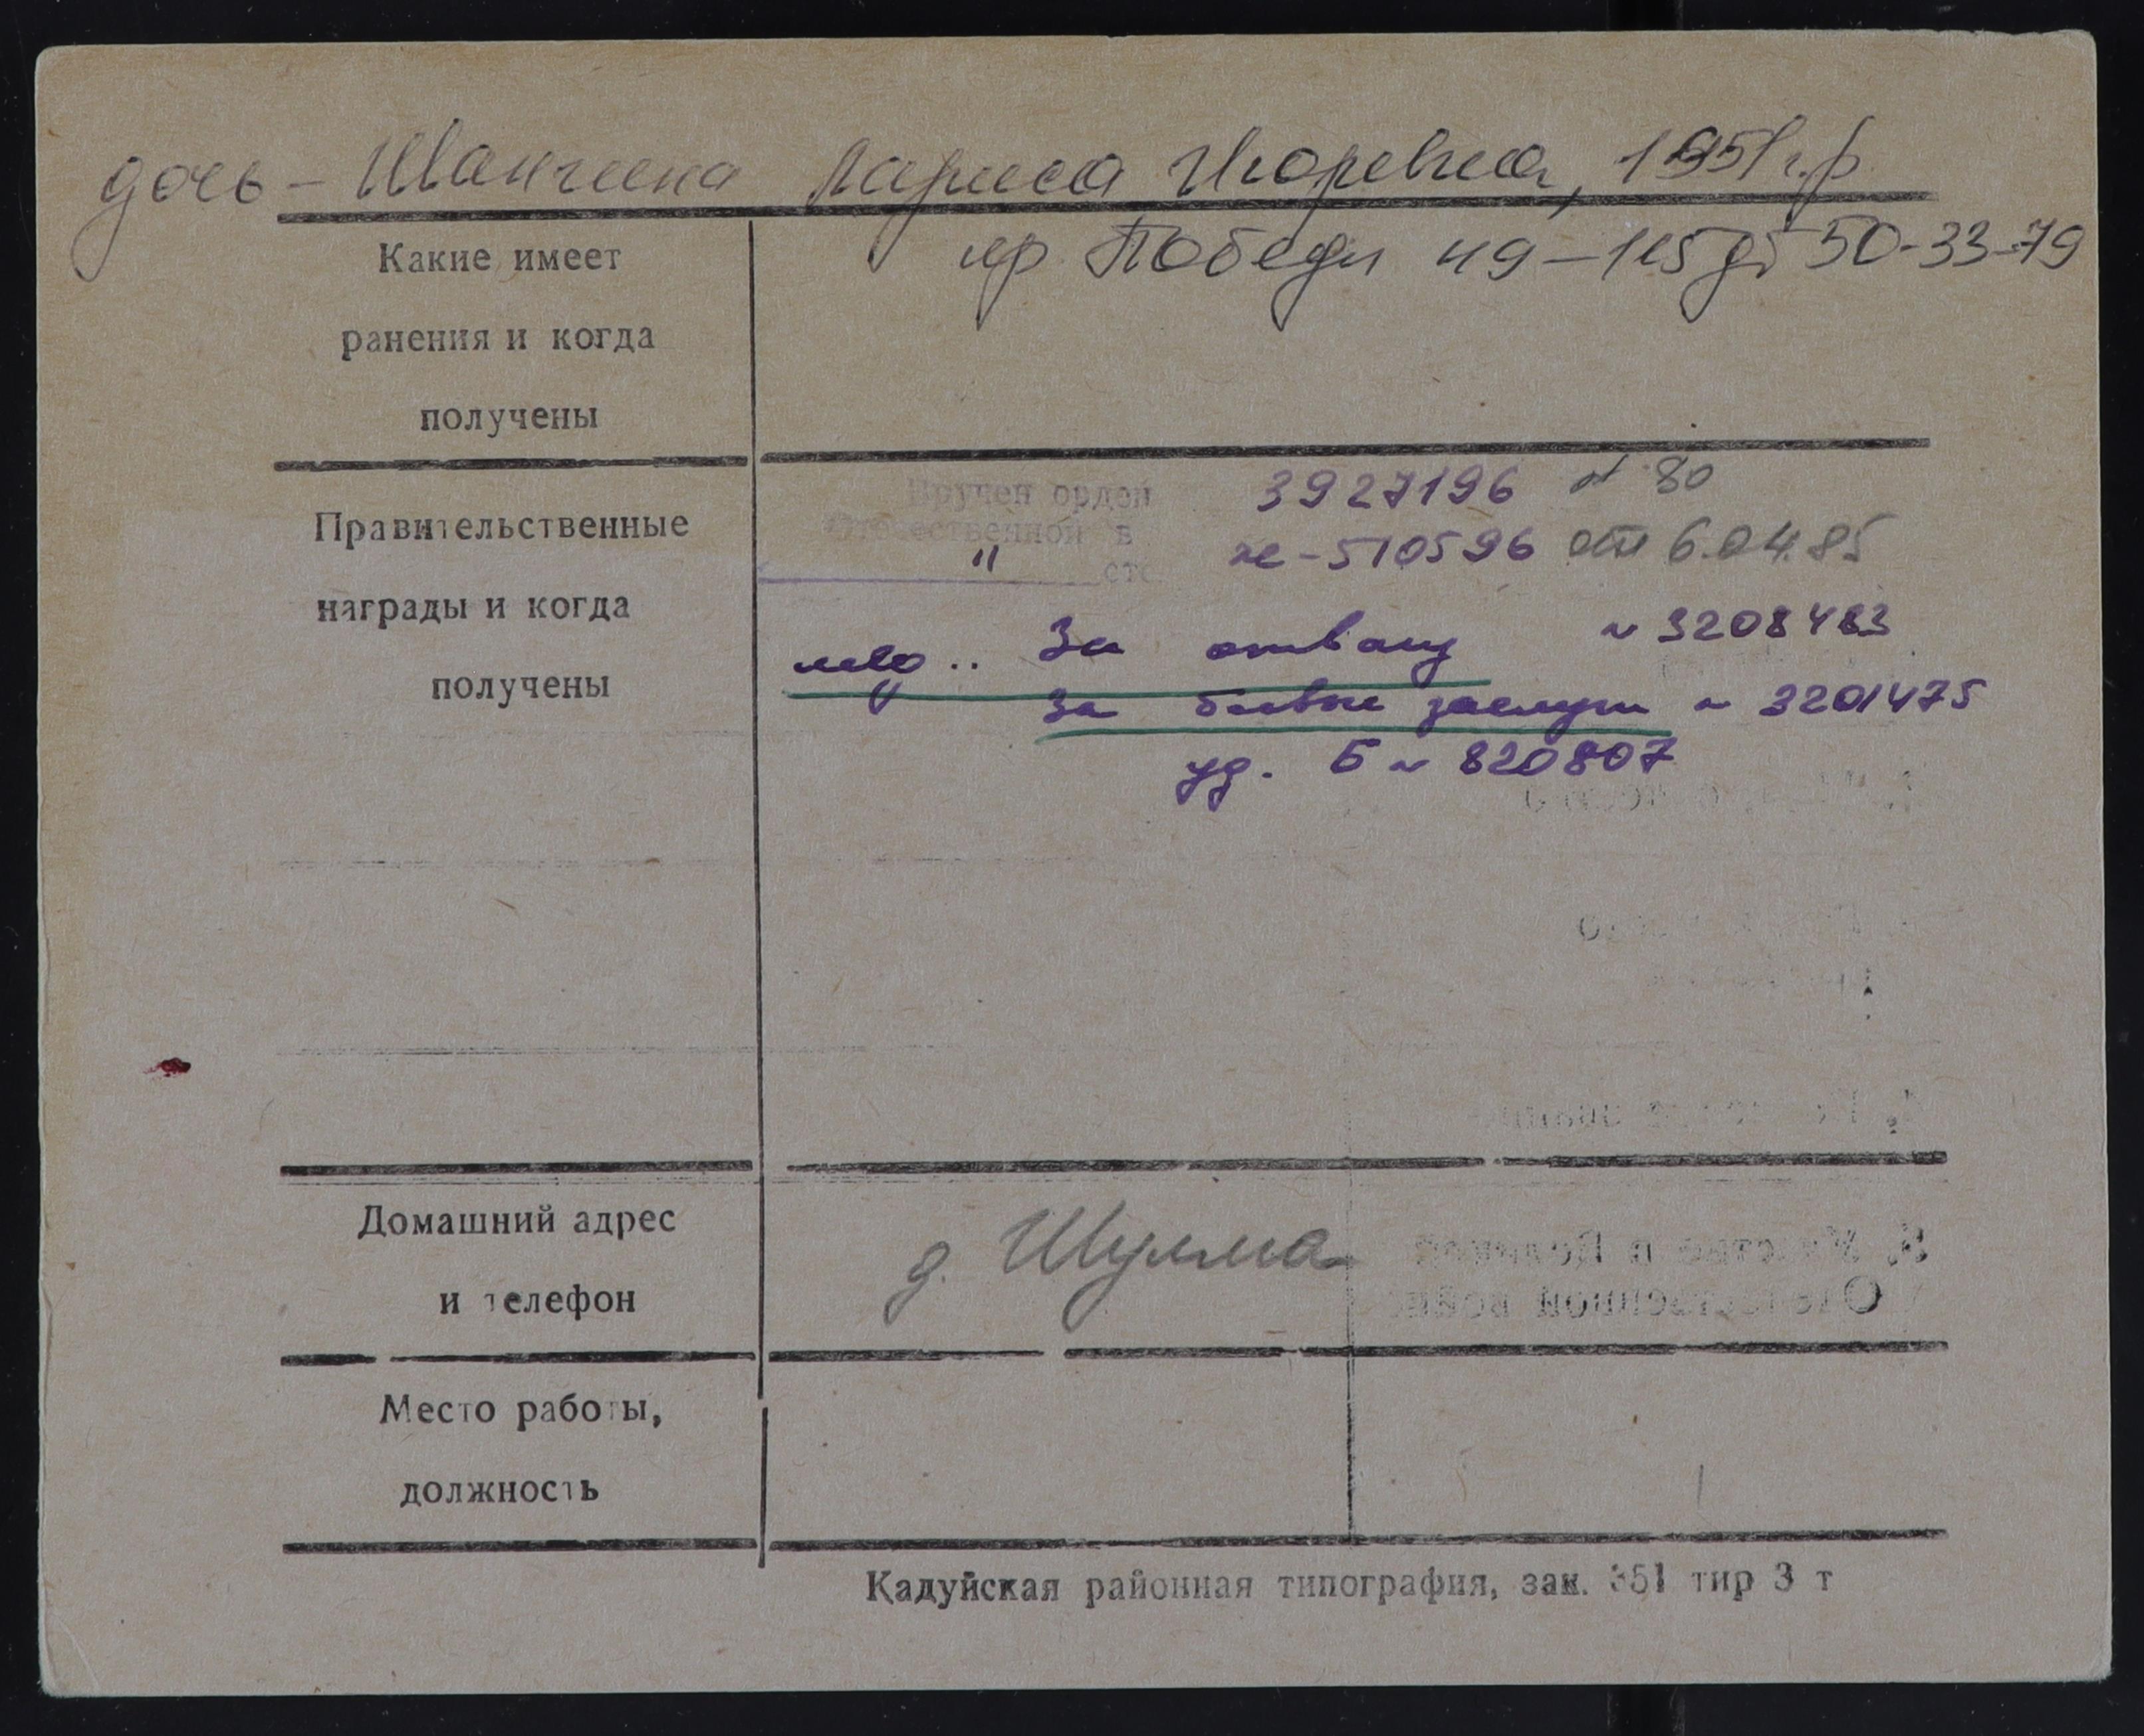 дочь – Шангина Лариса Игоревна, 1951 г.р.
Какие имеет
пр. Победы 49–115 дт 50-33-79
ранения и когда
получены
Вручен орден 3927196 № 80
Правительственные
Отечественной в
" же - 510596 от 6.04.85
сте
награды и когда
мед.. За отвагу № 3208483
получены
За боевые заслуги № 3201475
уд. Б № 820807
Домашний адрес
д. Шулма
и телефон
Место работы,
должность
Кадуйская районная типография, зак. 351 тир 3 т